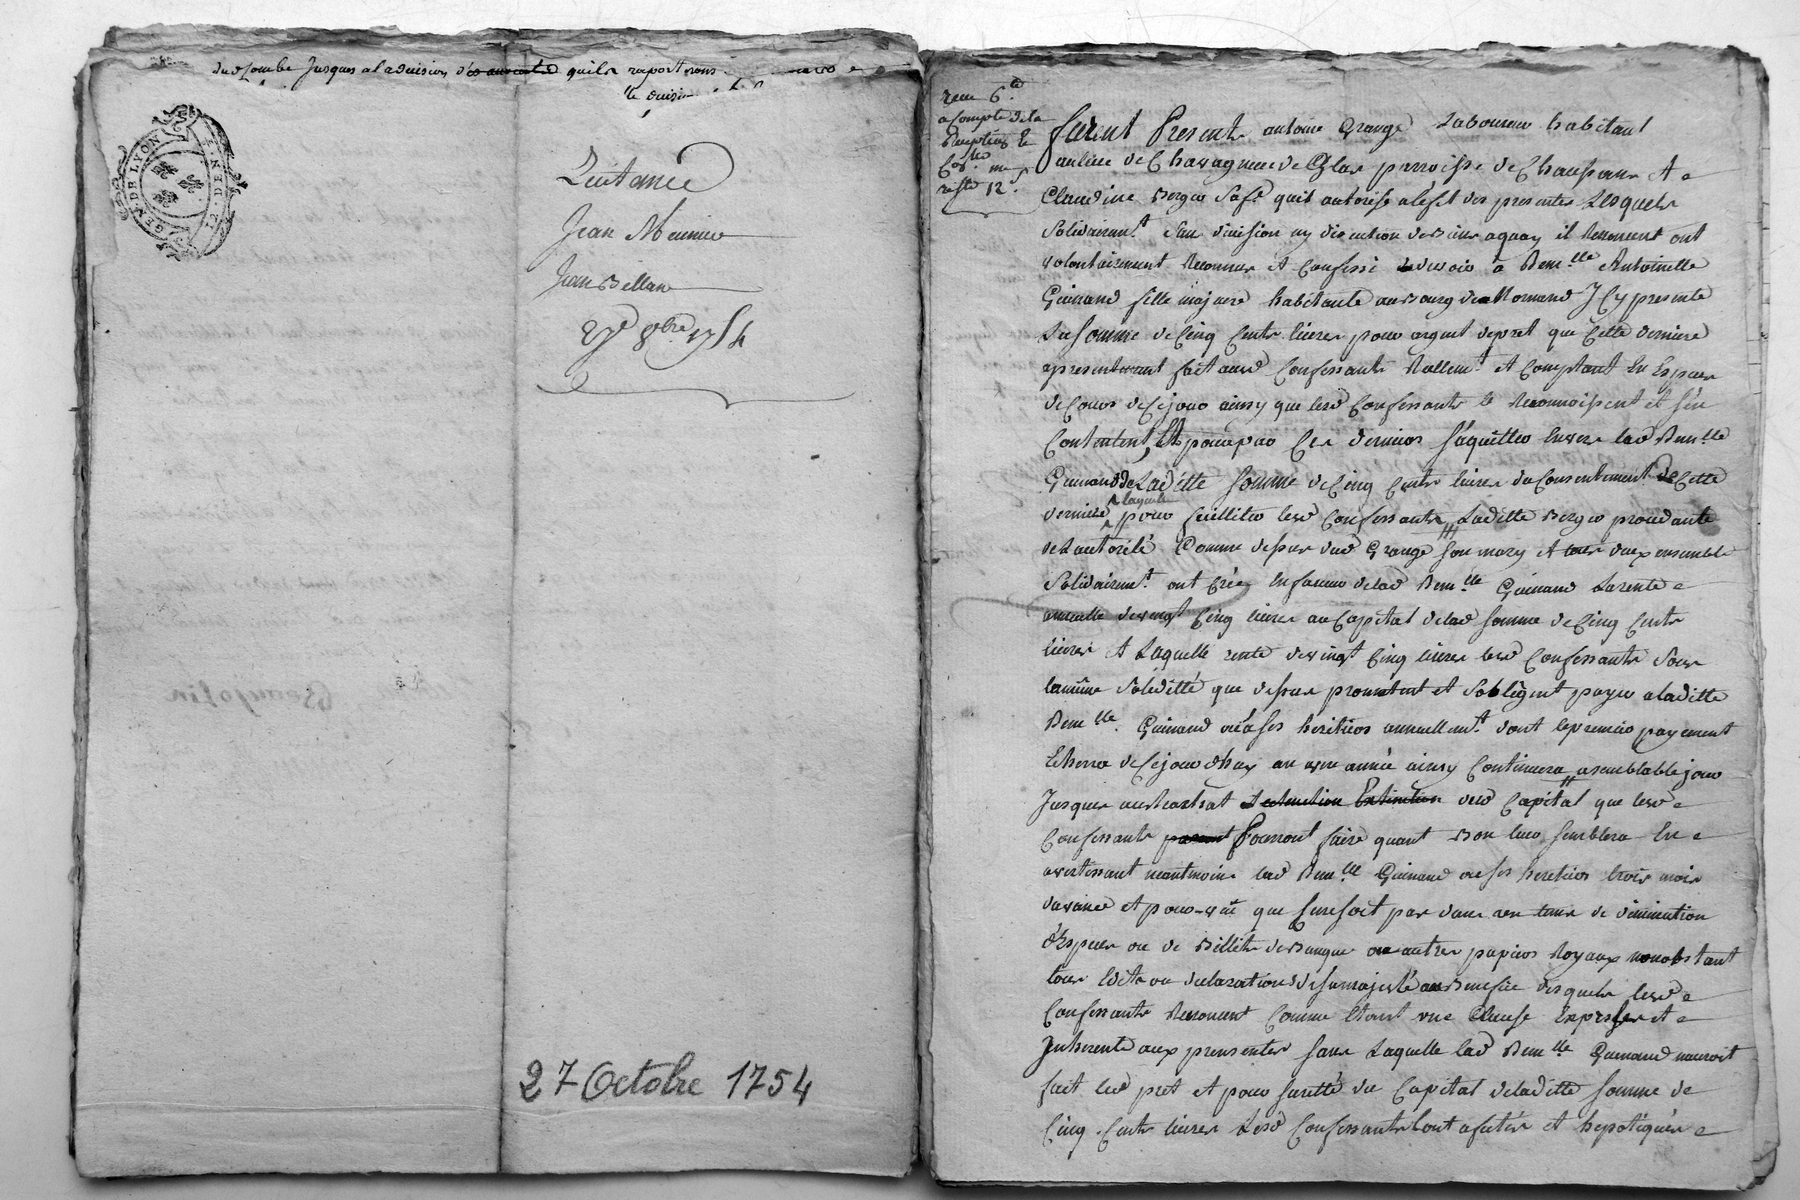 dud Combe Jusques a la decision des quils raporteront
GEN. DE LYON
Quittance
Jean Meunier
Jean Billan
27e 8bre 1754
27 Octobre 1754
reçu 6.ls
a Compte de la
Reception &
Con.lle me
reste 12.s
furent Presents antoine Grange Laboureur habitant
au lieu de Chavagneu de Glas parroisse de Chaussan Et
Claudine Berger Sa fe. quil autorise a l'efet des presentes Lesquels
Solidairemt. Sans division ny discution de biens a quoy il Renoncent ont
volontairement Reconnu et Confessé devoir a Demlle. Antoinette
Guinand fille majeure habitante au Bourg de Mornand Icy presente
La Somme de Cinq Cents livres pour argent de pret que Cette derniere
a presentement fait auxd Confessants Reellemt. et Comptant En Especes
de Cours de Ce jour ainsy que lesd Confessants le Reconnoissent et S'en
Contentent, Et pour par Ces derniers S'aquitter Envers lad Demlle
Guinand de Laditte Somme de Cinq Cents livres du Consentement de Cette
derniere laquelle pour faciliter lesd Confessants Laditte Berger procedante
de L'autorité Comme dessus dud Grange Son mary et tous deux ensemble
Solidairemt. ont Créé En faveur de lad Demlle Guinand La rente
annuelle de vingt Cinq livres au Capital de lad Somme de Cinq Cents
livres Et Laquelle rente de vingt Cinq livres lesd Confessants Sous
la même Solidité que dessus promettent et S'obligent payer a laditte
Demlle. Guinand ou a ses heritiers annuellemt. dont le premier payement
Echerra de Ce jour d'huy en une année ainsy Continuera a semblable jour
Jusques au Rachat Extinction dud Capital que lesd
Confessants Pourront faire quant Bon leur Semblera En
avertissant neantmoins lad Demlle Guinand ou ses heritiers trois mois
d'avance et pour-vû que Ce ne soit pas dans un tems de diminution
d'Especes ou de Billets de Banque ou autres papiers Royaux nonobstant
tous Edits ou declarations de Sa majesté au Benefice desquels lesd
Confessants Renoncent Comme Etant une Clause Expresse et
Inherente aux presentes Sans Laquelle lad Demlle Guinand n'auroit
fait led pret et pour Sureté du Capital de laditte Somme de
Cinq Cents livres Lesd Confessants ont afectés et hypotequés